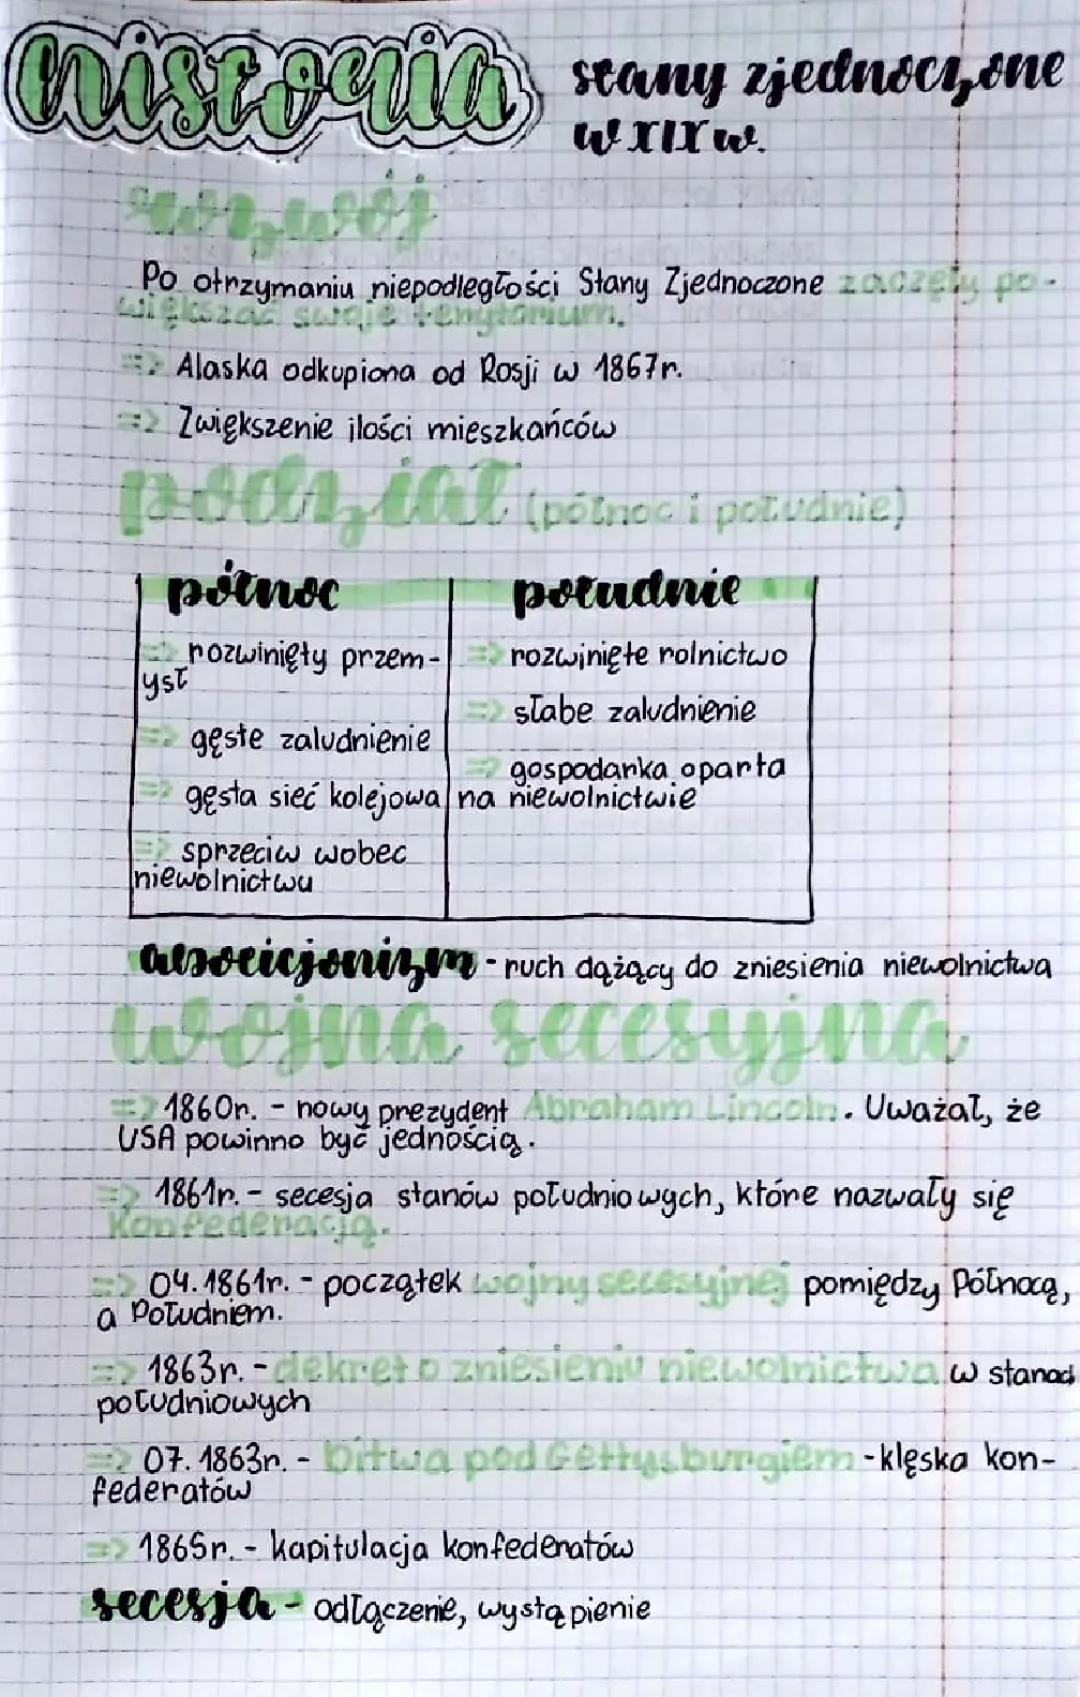 historia
stany zjednoczone
w XIX w.
rozwój
Po otrzymaniu niepodległości Stany Zjednoczone zaczęły po-
większać swoje terytorium.
=> Alaska odkupiona od Rosji w 1867r.
=> Zwiększenie ilości mieszkańców
podział (północ i południe)
północ
=> rozwinięty przem-
ysł
=> gęste zaludnienie
=> gęsta sieć kolejowa
=> sprzeciw wobec
niewolnictwu
południe
=> rozwinięte rolnictwo
=> słabe zaludnienie
=> gospodarka oparta
na niewolnictwie
- ruch dążący do zniesienia niewolnictwa
wojna secesyjna
=> 1860r. - nowy prezydent Abraham Lincoln. Uważał, że
USA powinno być jednością.
=> 1861r. - secesja stanów południowych, które nazwały się
Konfederacją.
=> 04.1861r. - początek wojny secesyjnej pomiędzy Północą,
a Południem.
=> 1863r. - dekret o zniesieniu niewolnictwa w stanach
południowych
=> 07.1863r. - bitwa pod Gettysburgiem - klęska kon-
federatów
=> 1865r. - kapitulacja konfederatów
secesja - odłączenie, wystąpienie